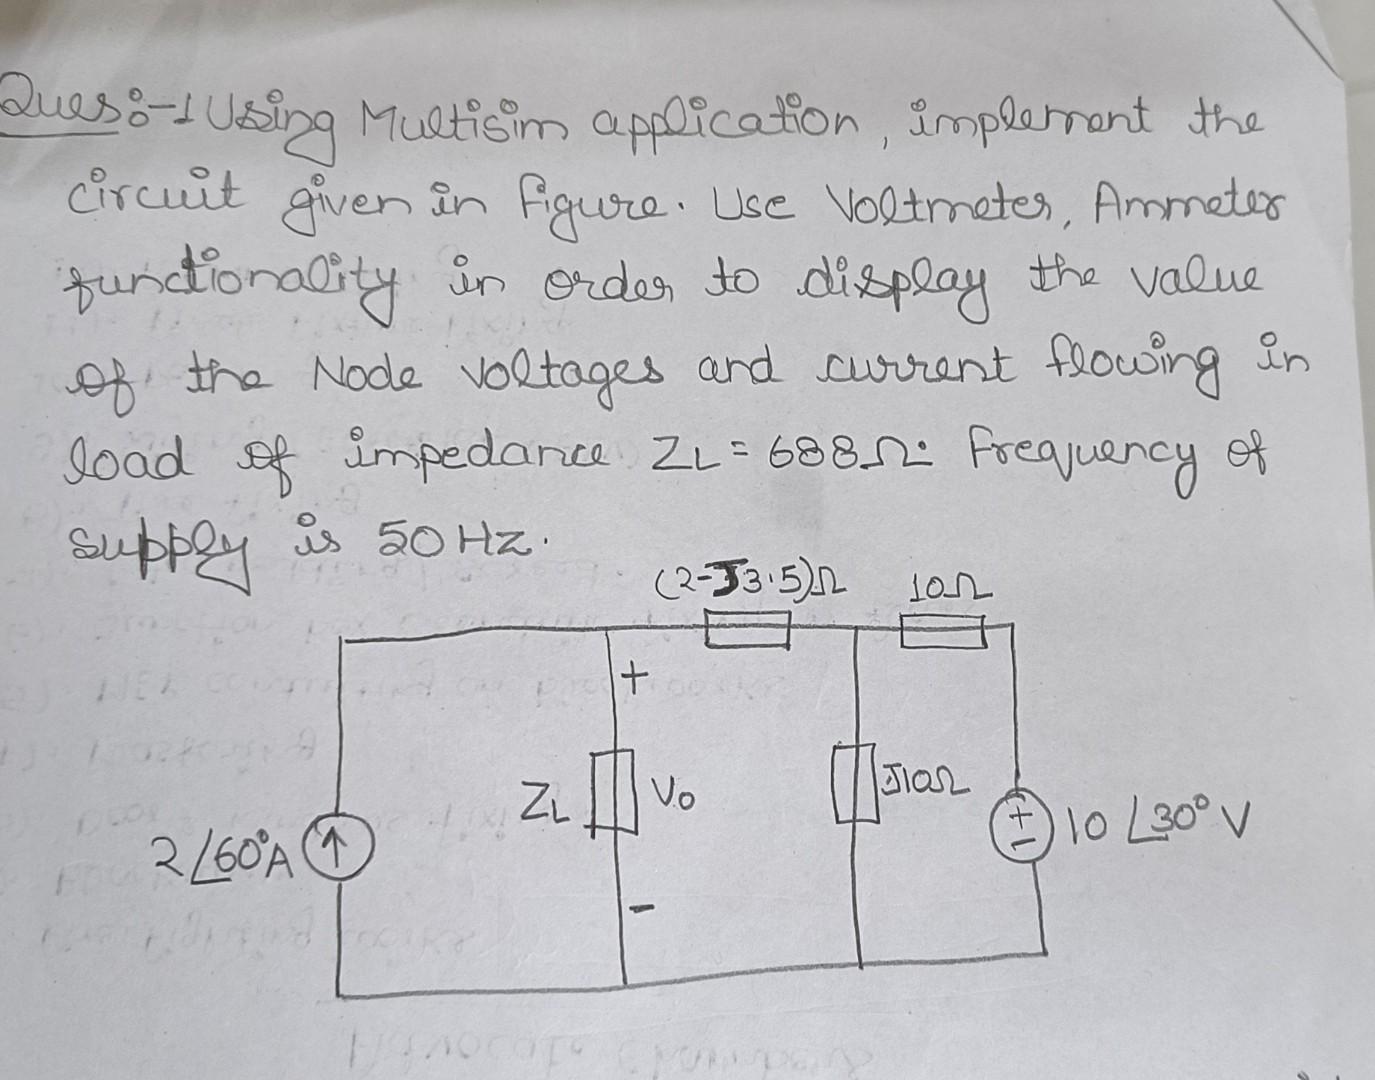 Ques:-1 Using Multisim application, implement the
circuit given in figure. Use Voltmeter, Ammeter
functionality in order to display the value
of the Node voltages and current flowing in
load of impedance ZL = 688Ω. Frequency of
supply is 50 Hz.
(2-J3.5)Ω 10Ω
+
ZL V0 J10Ω
2∠60°A + - 10 ∠30° V
-